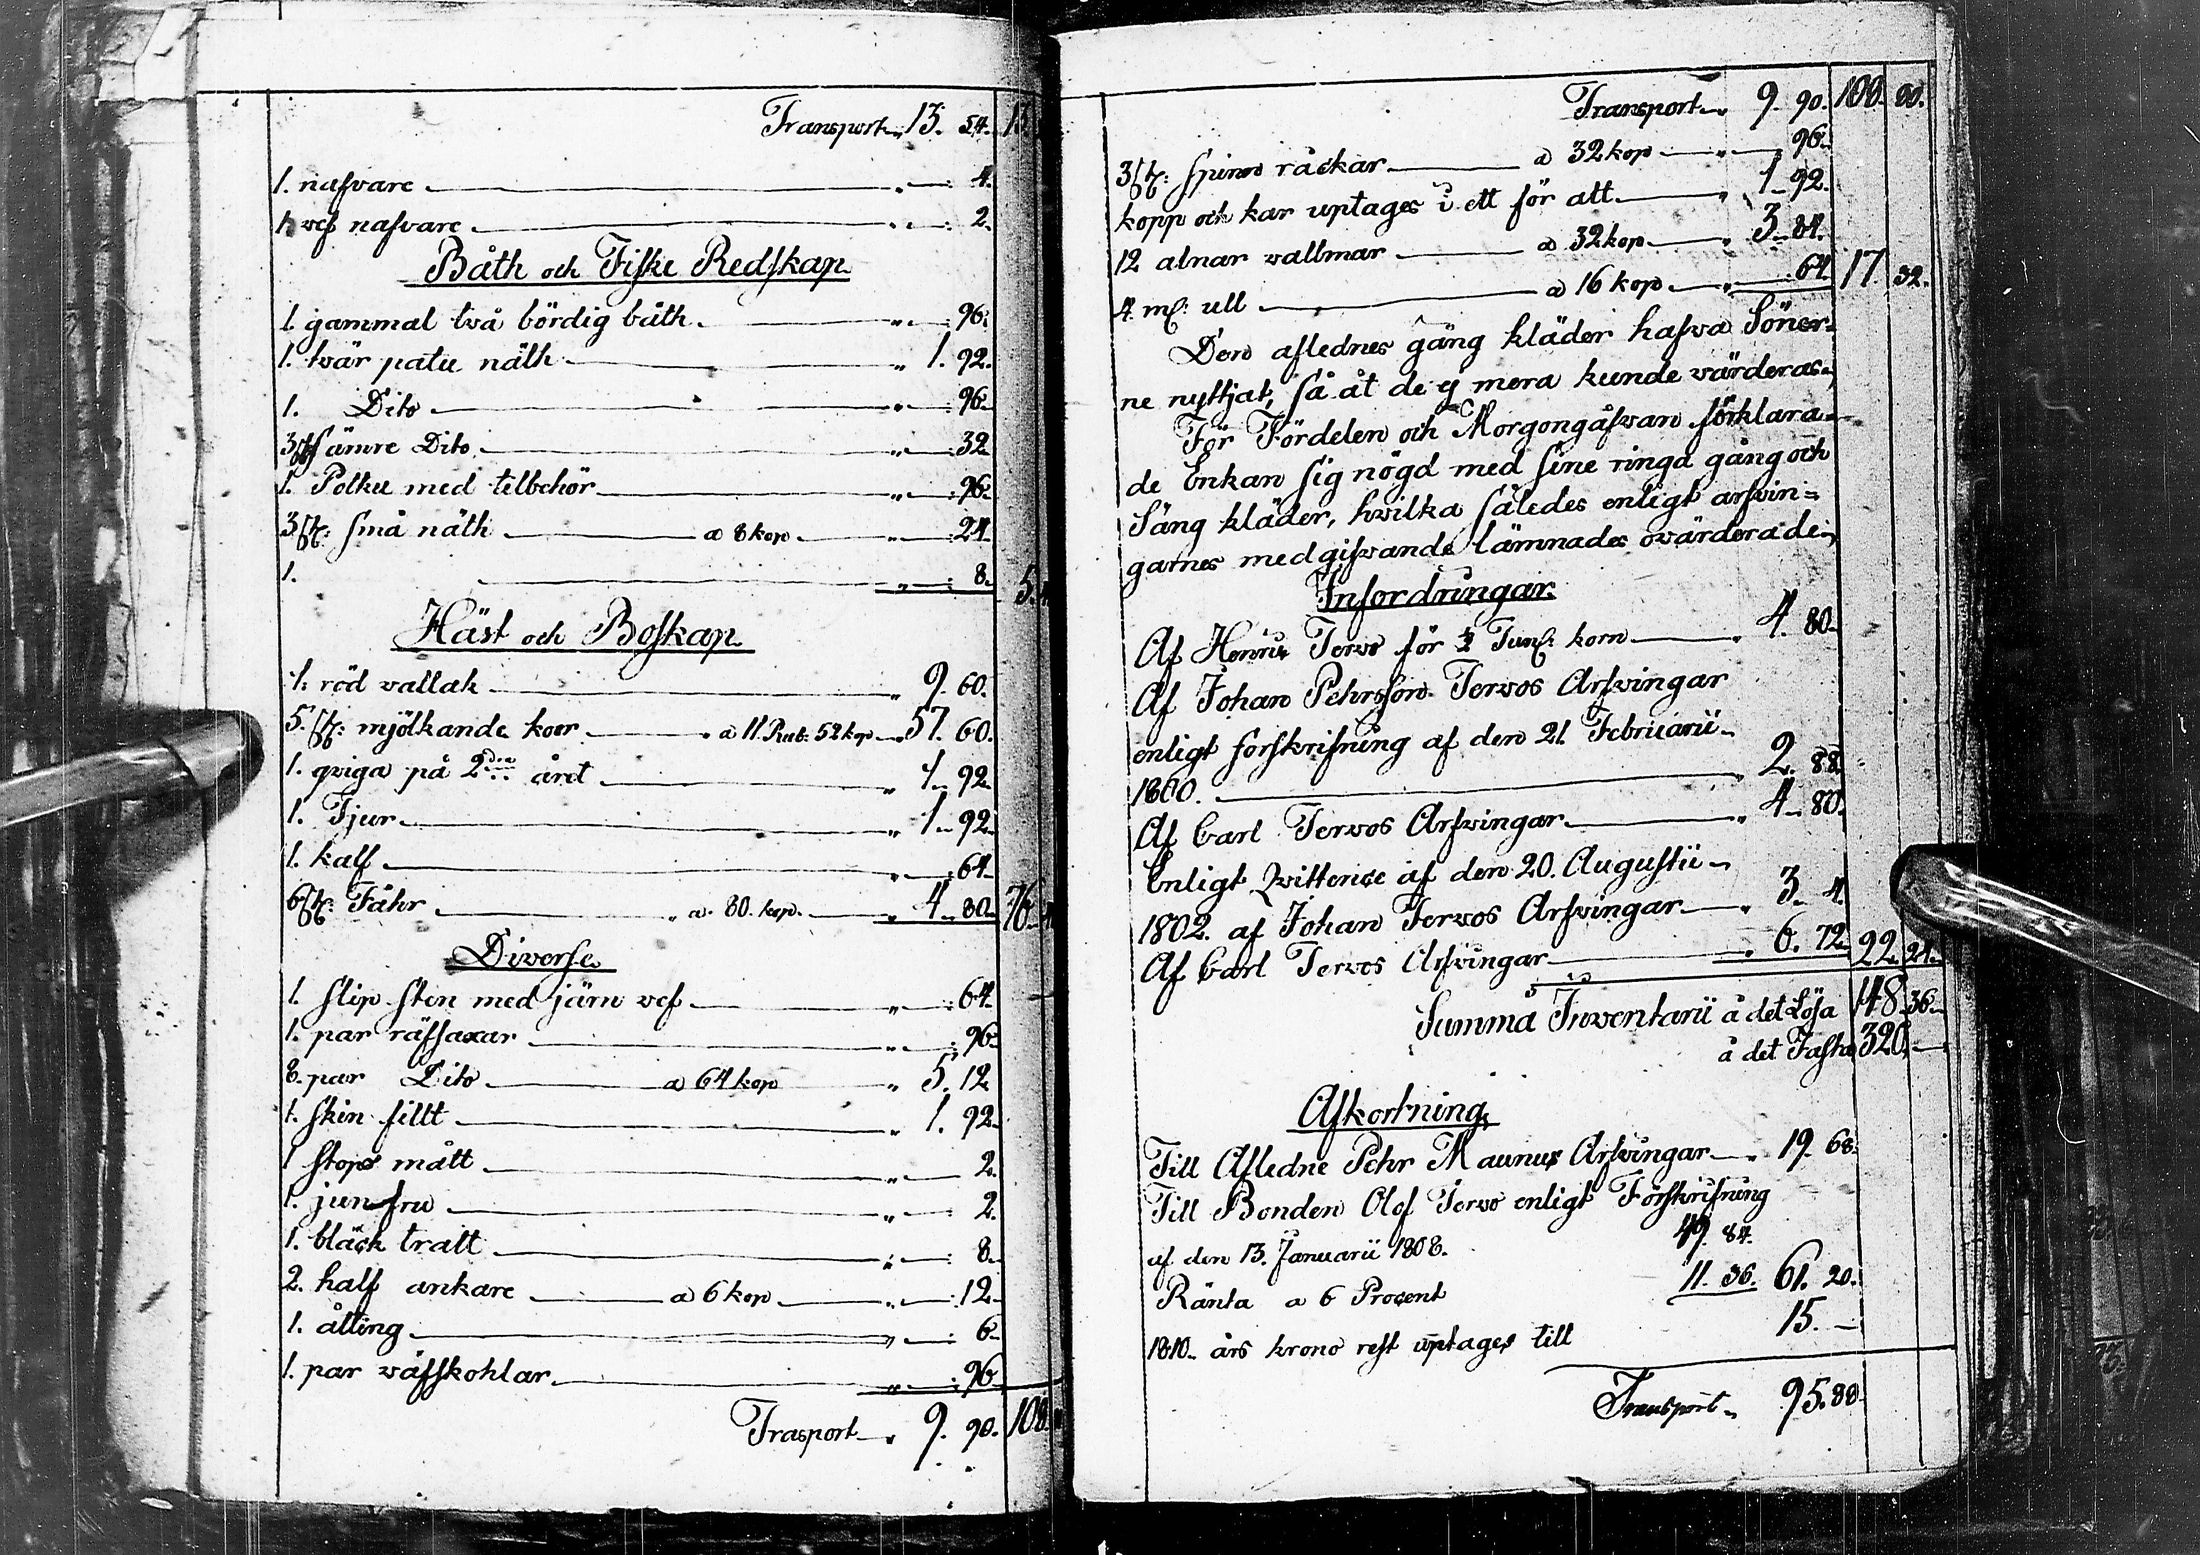 Transport 13. 54. 13
1. nafvare 4.
1. vef nafvare 2.
Båth och Fiske Redskap
1. gammal två bördig båth. 96.
1. twär patu näth 1. 92.
1. Dito 96.
3 st: sämre Dito 32.
1. Polku med tilbehör 96.
3 st: små näth a 8 kop 24.
1. 8. 5.
Häst och Boskap
1. röd vallak 9. 60.
5. st: mjölkande koer a 11. Rub: 52 kop 57. 60.
1. qviga på 2dra året 1. 92.
1. Tjur 1. 92.
1. kalf 64.
6 st: Fåhr a 80. kop. 4. 80. 76.
Diverse
1. slip sten med järn vef 64.
1. par räfsaxar 96.
8. par Dito a 64 kop 5. 12.
1. skin fillt 1. 92.
1 stops mått 2.
1. junfru 2.
1. bläck tratt 8.
2. half ankare a 6 kop 12.
1. åtting 6.
1. par våfskohlar 96.
Trasport 9. 90. 108.
Transport 9. 90. 108. 90.
3 st: spinn råckar a 32 kop 96.
kopp och kar uptages i ett för allt 1. 92.
12 alnar vallmar a 32 kop 3. 84.
4 m: ull a 16 kop 64 17 32.
Den aflednes gång kläder hafva Söner-
ne nyttjat, så at de ej mera kunde värderas.
För Fördelen och Morgongåfvan förklara-
de Enkan sig nögd med sine ringa gång och
Säng kläder, hvilka således enligt arfvin=
garnes medgifvande lämnades ovärderade.
Infordringar.
Af Henric Tervo för ½ Tun: korn 4. 80.
Af Johan Pehrsson Tervos Arfvingar
enligt forskrifning af den 21. Februarii
1800. 2. 88.
Af Carl Tervos Arfvingar 4. 80.
Enligt Qvittence af den 20. Augustii
1802. af Johan Tervos Arfvingar 3. 4.
Af Carl Tervos Arfvingar 6. 72. 22. 24.
Summa Inventarii å det Lösa 148 36
å det Fasta 320.
Afkortning
Till Afledne Pehr Maunus Arfvingar 19. 68.
Till Bonden Olof Tervo enligt Förskrifning
af den 13. Januarii 1808. 49. 84.
Ränta a 6 Procent 11. 36. 61. 20.
1810. års krono rest uptages till 15.
Transport 95. 88.